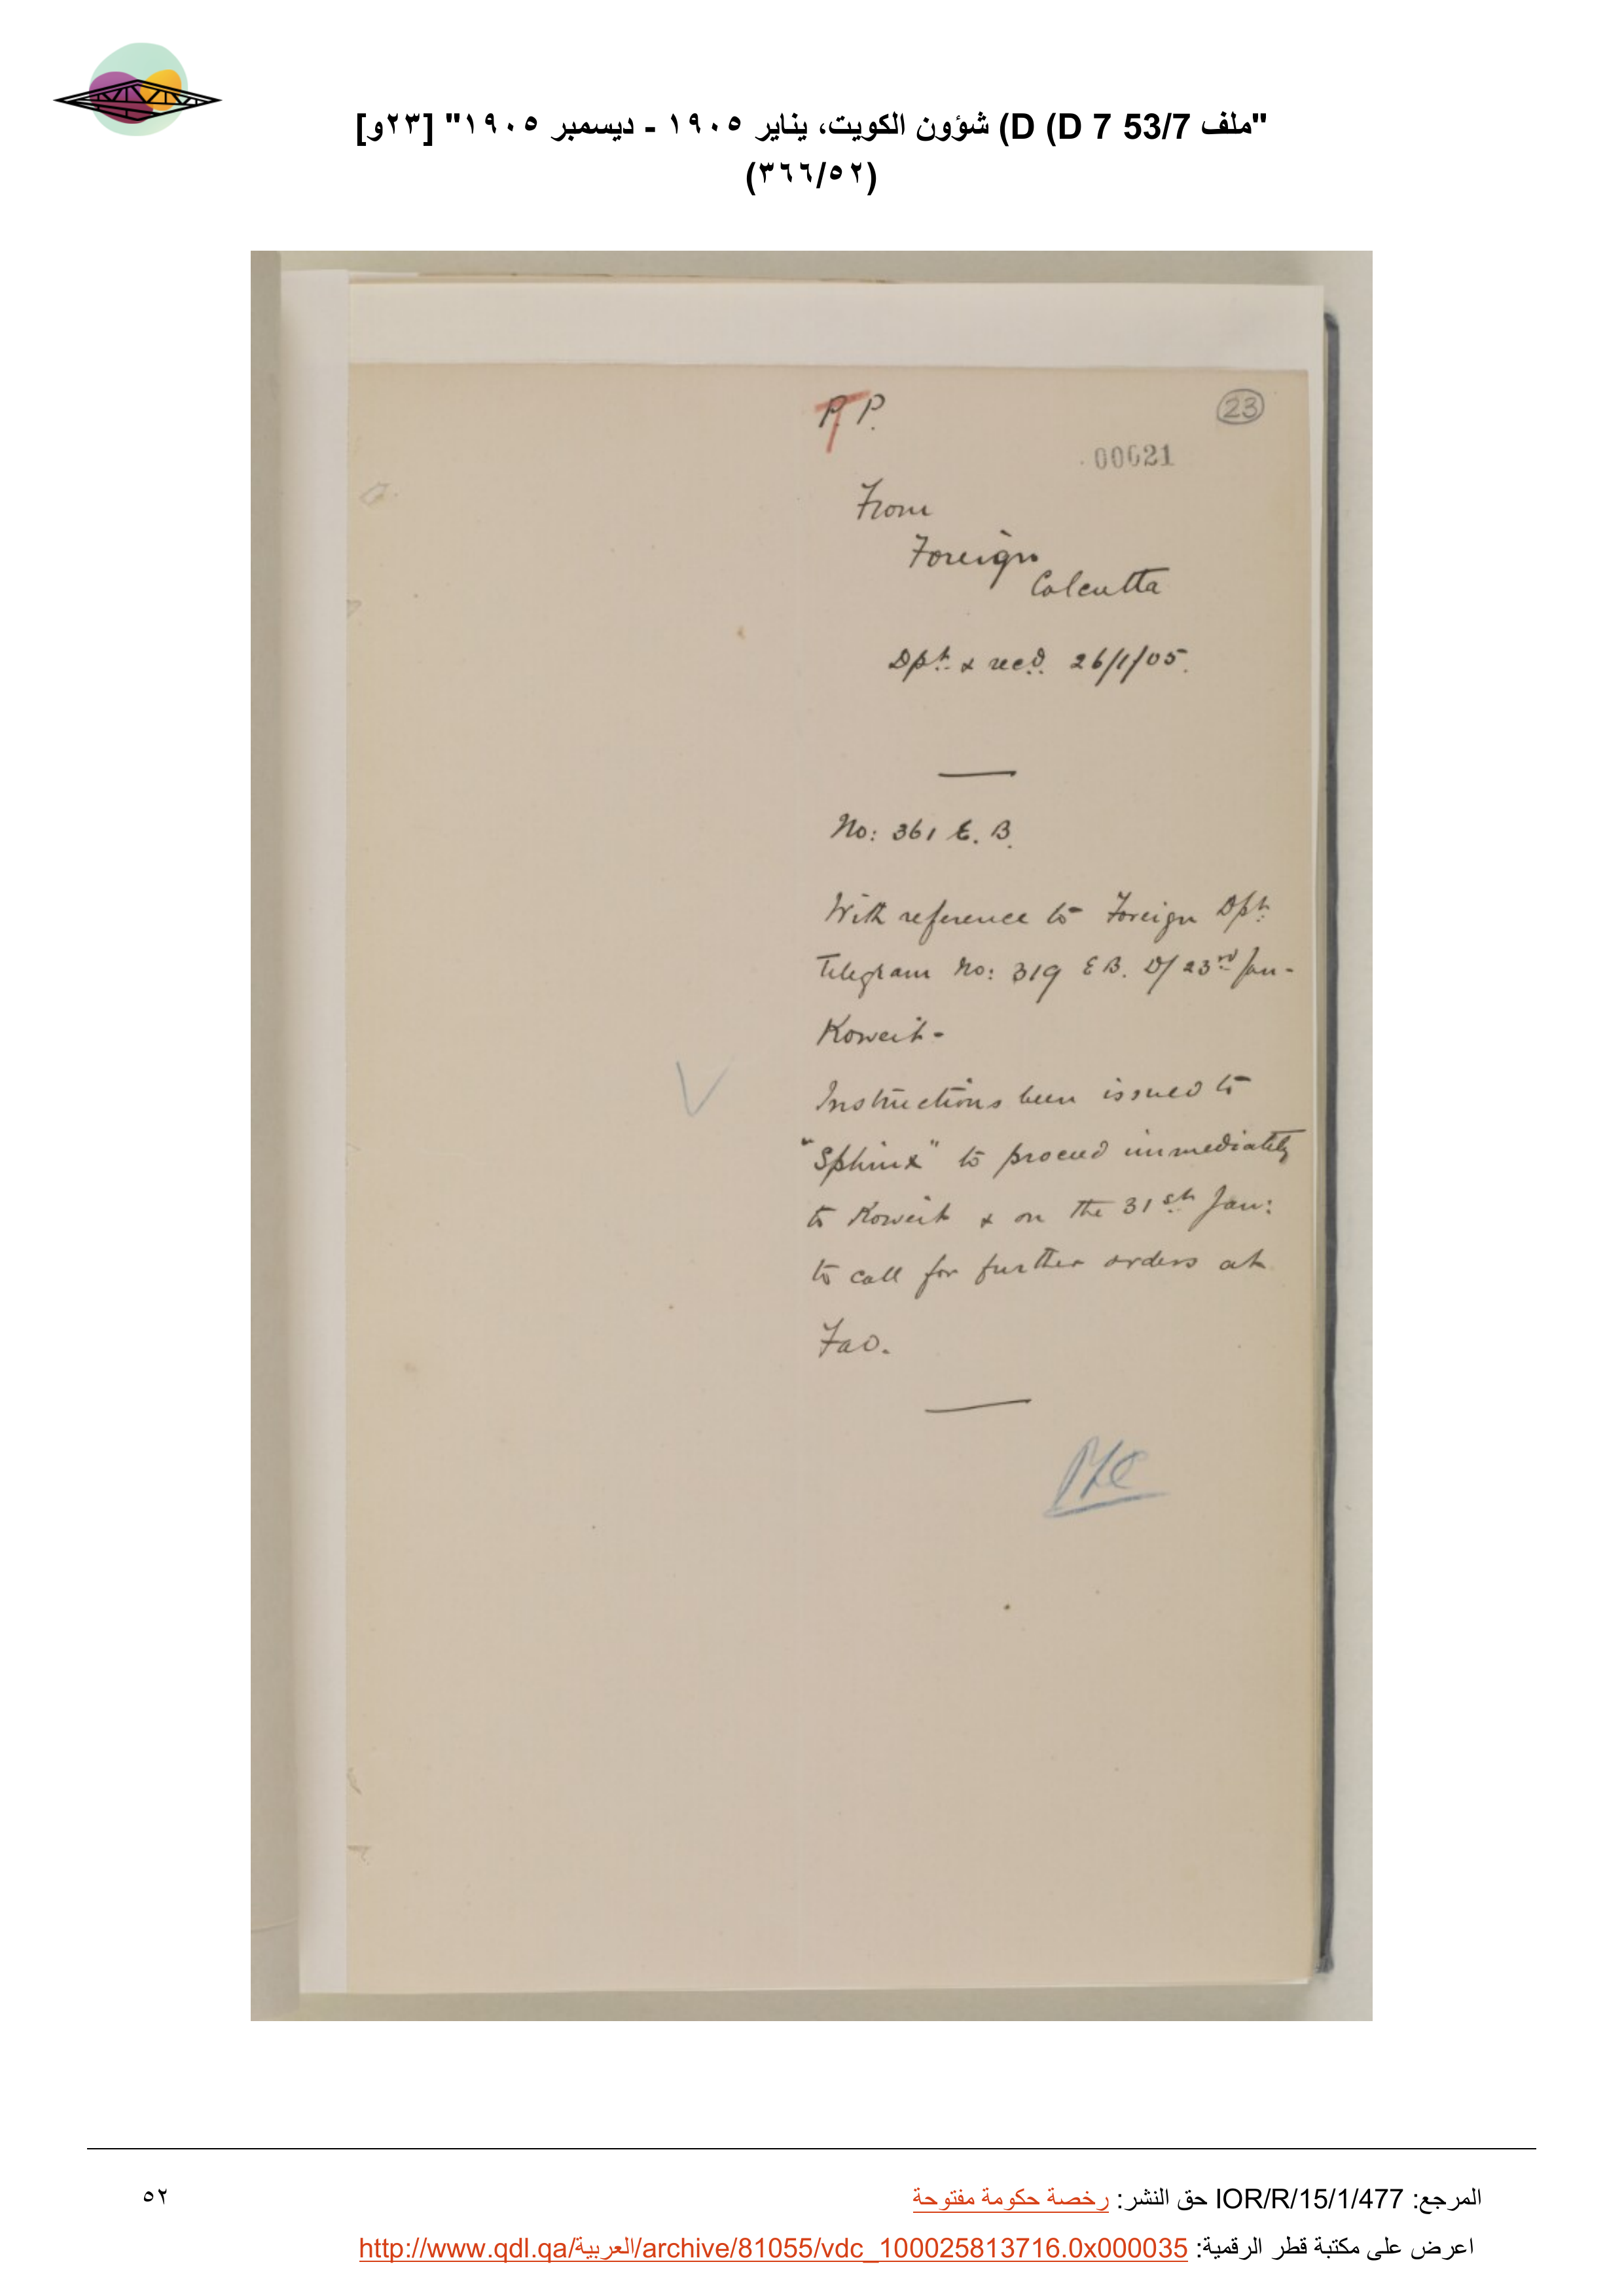 "ملف 53/7 D 7) D) شؤون الكويت، يناير ١٩٠٥ - ديسمبر ١٩٠٥" [٢٣و]
(٣٦٦/٥٢)
P. P.
23
00021
From
Foreign
Calcutta
Dpt. & recd. 26/1/05.
No: 361 E. B.
With reference to Foreign Dpt.
Telegram No: 319 E B. D/ 23rd Jan-
Koweit-
Instructions been issued to
"Sphinx" to proceed immediately
to Koweit & on the 31st Jan:
to call for further orders at
Fao.
المرجع: IOR/R/15/1/477 حق النشر: رخصة حكومة مفتوحة
٥٢
اعرض على مكتبة قطر الرقمية: http://www.qdl.qa/العربية/archive/81055/vdc_100025813716.0x000035